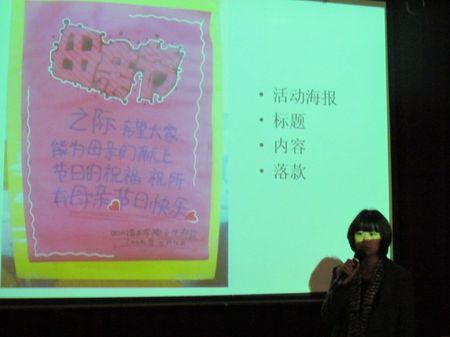 母亲节
之际 希望大家
能为母亲们献上
节日的祝福 祝所
有母亲节日快乐
• 活动海报
• 标题
• 内容
• 落款